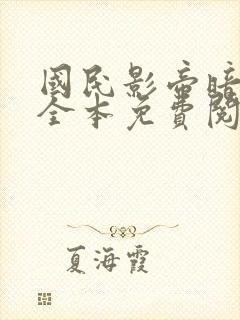 國民影帝暗
全本免費閱
夏海霞